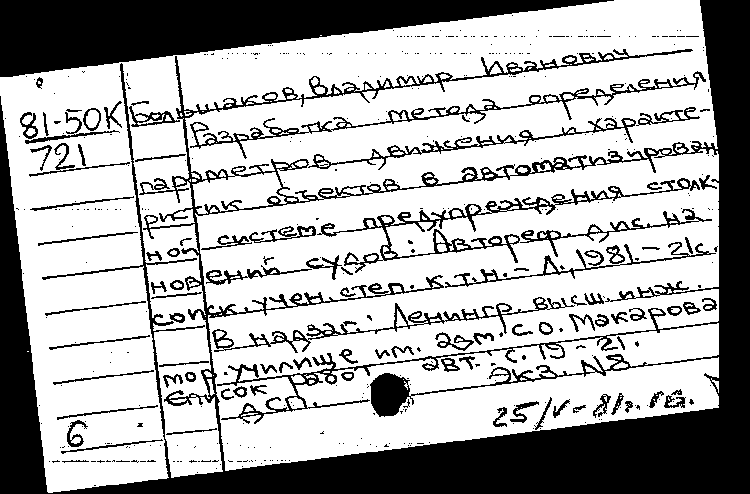 81-50К
721
Большаков, Владимир Иванович
Разработка метода определения
параметров движения и характе-
ристик объектов в автоматизирован
ной системе предупреждения столк-
новений судов: Автореф. дис. на
соиск. учен. степ. к.т.н. - Л., 1981. - 21с.
В надзаг.: Ленингр. высш. инж.
мор. училище им. адм. С.О. Макарова
Список работ авт.: с. 19-21.
ДСП. Экз. N8.
6
25/V-81г.